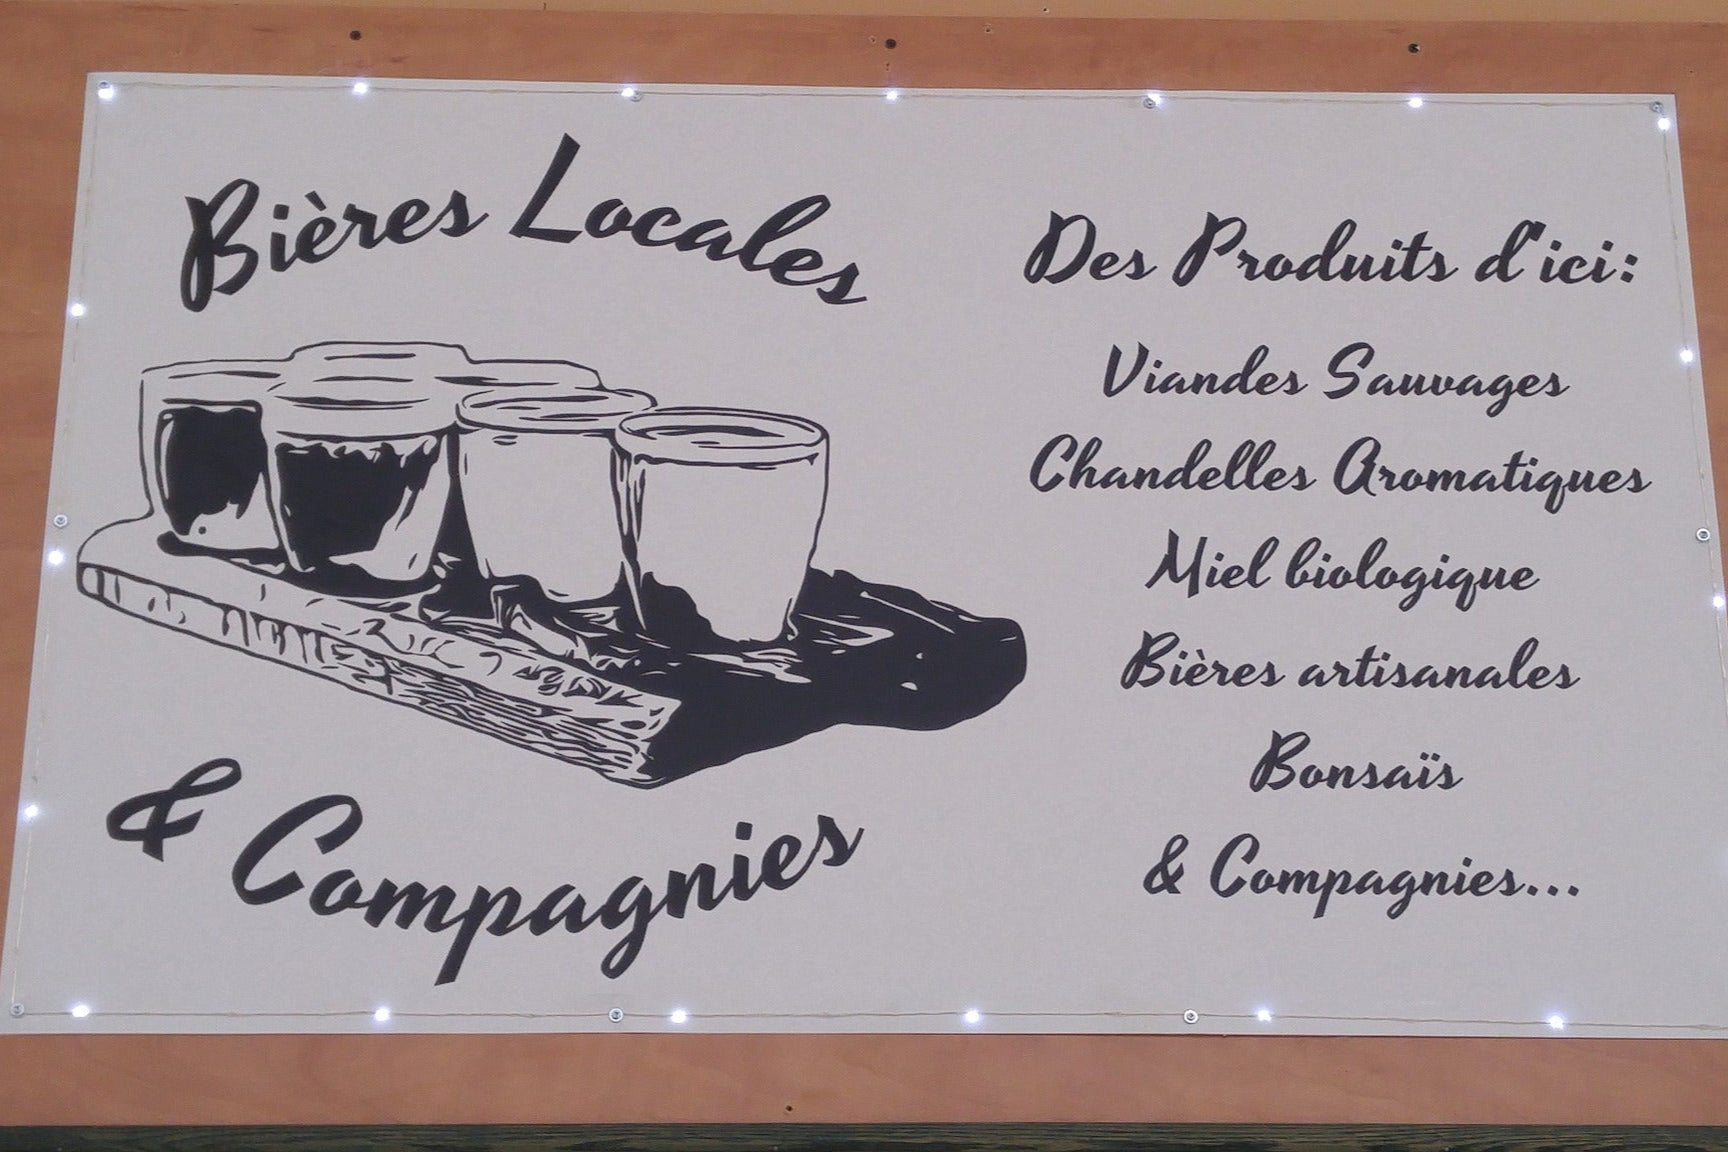 Bières Locales
& Compagnies
Des Produits d'ici:
Viandes Sauvages
Chandelles Aromatiques
Miel biologique
Bières artisanales
Bonsaïs
& Compagnies...